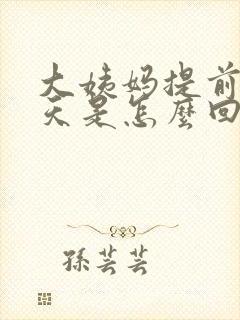 大姨妈提前
天是怎麼回
孫芸芸